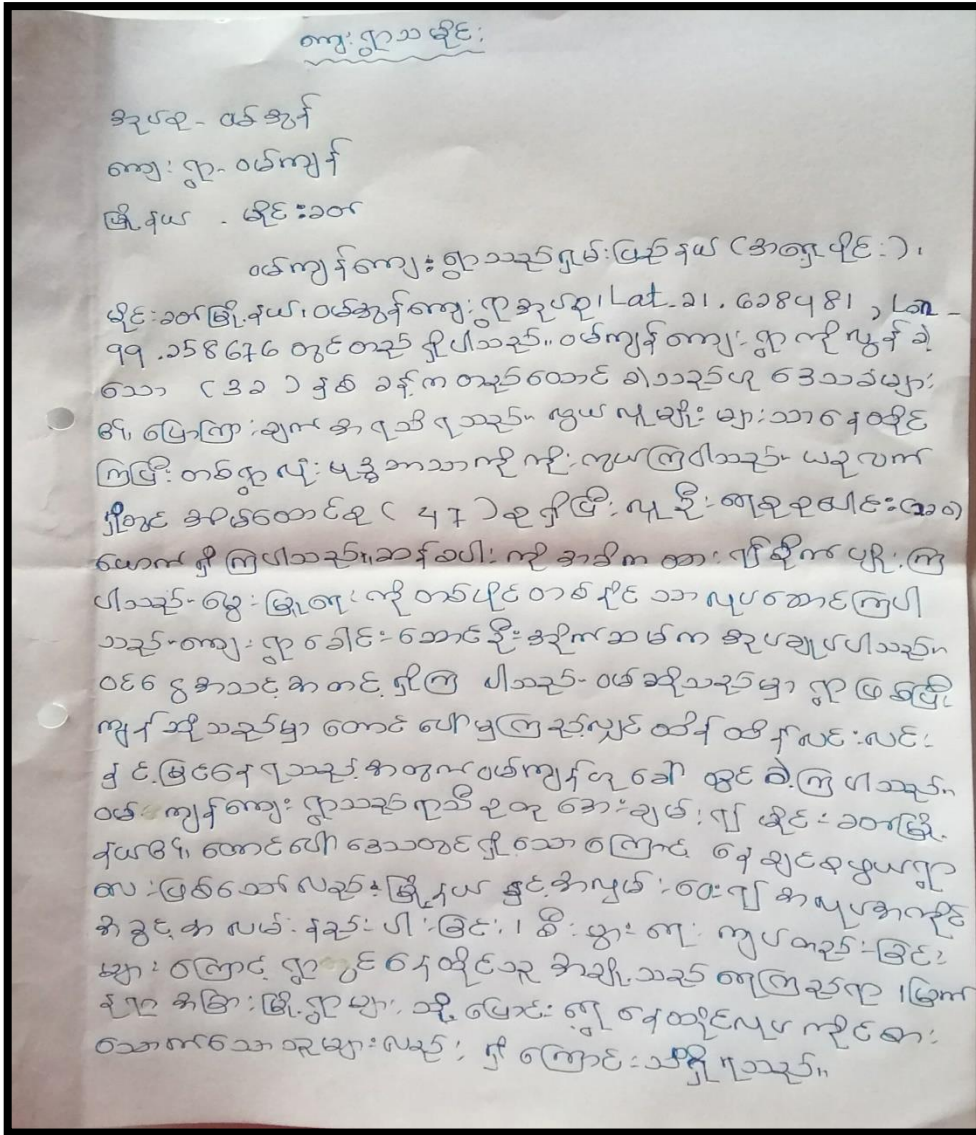 ကျေးရွာသမိုင်း
အုပ်စု - ဝမ်အွန်
ကျေးရွာ - ဝမ်ကျန်
မြို့နယ် - မိုင်းခတ်
ဝမ်ကျန်ကျေးရွာသည်ရှမ်းပြည်နယ် (အရှေ့ပိုင်း)၊
မိုင်းခတ်မြို့နယ်၊ ဝမ်အွန်ကျေးရွာအုပ်စု၊ Lat. 21. 628481 , Lon -
99 .258676 တွင်တည်ရှိပါသည်။ ဝမ်ကျန်ကျေးရွာကိုလွန်ခဲ့
သော (၃၁) နှစ်ခန့်ကတည်ထောင်ခဲ့သည်ဟု ဒေသခံများ
၏ ပြောကြားချက်အရသိရသည်။ လွယ်လူမျိုးများသာနေထိုင်
ကြပြီး တစ်ရွာလုံး ဗုဒ္ဓဘာသာကိုကိုးကွယ်ကြပါသည်။ ယခုလက်
ရှိတွင် အိမ်ထောင်စု ( 47 ) စုရှိပြီး လူဦးရေစုစုပေါင်း
ယောက်ရှိကြပါသည်။ ဆန်စပါးကိုအဓိကထား၍စိုက်ပျိုးကြ
ပါသည်။ မွေးမြူရေးကိုတစ်ပိုင်တစ်နိုင်သာလုပ်ဆောင်ကြပါ
သည်။ ကျေးရွာခေါင်းဆောင်ဦးအိုက်ဆမ်ကအုပ်ချုပ်ပါသည်။
ဝင်ငွေအသင့်အတင့်ရှိကြပါသည်။ ဝမ်ဆိုသည်မှာ ရွာဖြစ်ပြီး
ကျန်ဆိုသည်မှာ တောင်ပေါ်မှကြည့်လျှင်ထိန်ထိန်လင်းလင်း
နှင့်မြင်နေရသည့်အတွက်ဝမ်ကျန်ဟုခေါ်တွင်ခဲ့ကြပါသည်။
ဝမ်ကျန်ကျေးရွာသည်ရာသီဥတုအေးချမ်း၍ မိုင်းခတ်မြို့
နယ်၏ တောင်ပေါ်ဒေသတွင်ရှိသောကြောင့် နေချင်စဖွယ်ရွာ
လေးဖြစ်သော်လည်း မြို့နယ်နှင့်အလှမ်းဝေး၍ အလုပ်အကိုင်
အခွင့်အလမ်းနည်းပါးခြင်း၊ စီးပွားရေးကျပ်တည်းခြင်း
များကြောင့် ရွာတွင်နေထိုင်သူအချို့သည် တာချီလိတ်၊ မြို့
အခြားမြို့ရွာများသို့ ပြောင်းရွှေ့နေထိုင်လုပ်ကိုင်စား
သောက်သောသူများလည်း ရှိကြောင်းသိရှိရသည်။